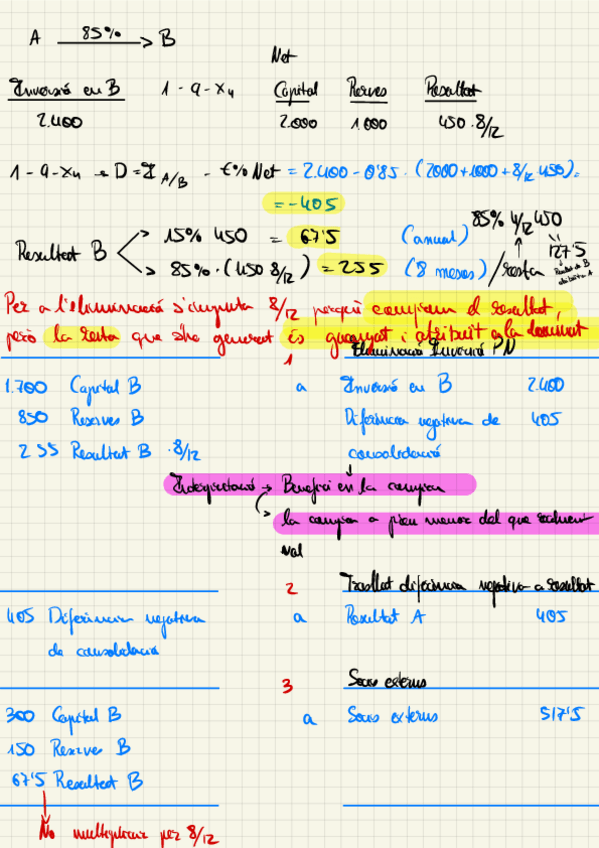 A 85% B
Net
Inversió en B 1-9-X4 Capital Reserves Resultat
2.400 2.000 1.000 450·8/12
1-9-X4 → D = I A/B - €% Net = 2.400 - 0'85 · (2000+1000+8/12 450) =
= -405
85% 4/12 450
Resultat B 15% 450 = 67'5 (anual) 127'5
85%·(450 8/12) = 255 (8 mesos) / resta
Per a l'eliminació s'imputa 8/12 perquè comprem el resultat,
però la resta que s'ha generat és guanyat i atribuït a la dominant
1 Eliminació Inversió PN
1.700 Capital B a Inversió en B 2.400
850 Reserves B Diferència negativa de 405
255 Resultat B ·8/12 consolidació
Interpretació → Benefici en la compra
la compra a preu menor del que realment
val
2 Trasllat diferència negativa a resultat
405 Diferència negativa a Resultat A 405
de consolidació
3 Socis externs
300 Capital B a Socis externs 517'5
150 Reserves B
67'5 Resultat B
No multiplicar per 8/12